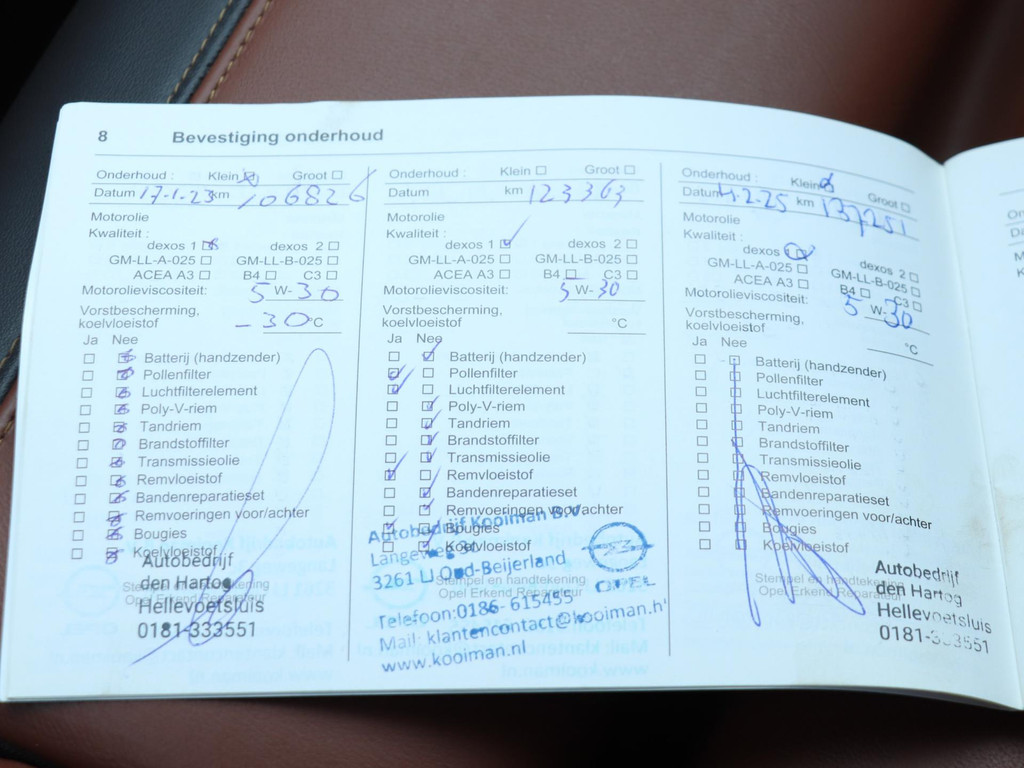 8 Bevestiging onderhoud
Onderhoud : Klein Groot
Datum 17-1-23 km 106826
Motorolie
Kwaliteit :
dexos 1 dexos 2
GM-LL-A-025 GM-LL-B-025
ACEA A3 B4 C3
Motorolieviscositeit: 5 W- 30
Vorstbescherming,
koelvloeistof - 30 °C
Ja Nee
Batterij (handzender)
Pollenfilter
Luchtfilterelement
Poly-V-riem
Tandriem
Brandstoffilter
Transmissieolie
Remvloeistof
Bandenreparatieset
Remvoeringen voor/achter
Bougies
Koelvloeistof
Stempel en handtekening
Opel Erkend Reparateur
Autobedrijf
den Hartog
Hellevoetsluis
0181-333551
Onderhoud : Klein Groot
Datum km 123363
Motorolie
Kwaliteit :
dexos 1 dexos 2
GM-LL-A-025 GM-LL-B-025
ACEA A3 B4 C3
Motorolieviscositeit: 5 W- 30
Vorstbescherming,
koelvloeistof °C
Ja Nee
Batterij (handzender)
Pollenfilter
Luchtfilterelement
Poly-V-riem
Tandriem
Brandstoffilter
Transmissieolie
Remvloeistof
Bandenreparatieset
Remvoeringen voor/achter
Bougies
Koelvloeistof
Stempel en handtekening
Opel Erkend Reparateur
Autobedrijf Kooiman B.V.
3261 LJ Oud-Beijerland
Telefoon:0186- 615455
Mail: klantencontact@kooiman.n
www.kooiman.nl
OPEL
Onderhoud : Klein Groot
Datum 4-2-25 km 137251
Motorolie
Kwaliteit :
dexos dexos 2
GM-LL-A-025 GM-LL-B-025
ACEA A3 B4 C3
Motorolieviscositeit: 5 W- 30
Vorstbescherming,
koelvloeistof °C
Ja Nee
Batterij (handzender)
Pollenfilter
Luchtfilterelement
Poly-V-riem
Tandriem
Brandstoffilter
Transmissieolie
Remvloeistof
Bandenreparatieset
Remvoeringen voor/achter
Bougies
Koelvloeistof
Stempel en handtekening
Opel Erkend Reparateur
Autobedrijf
den Hartog
Hellevoetsluis
0181-333551